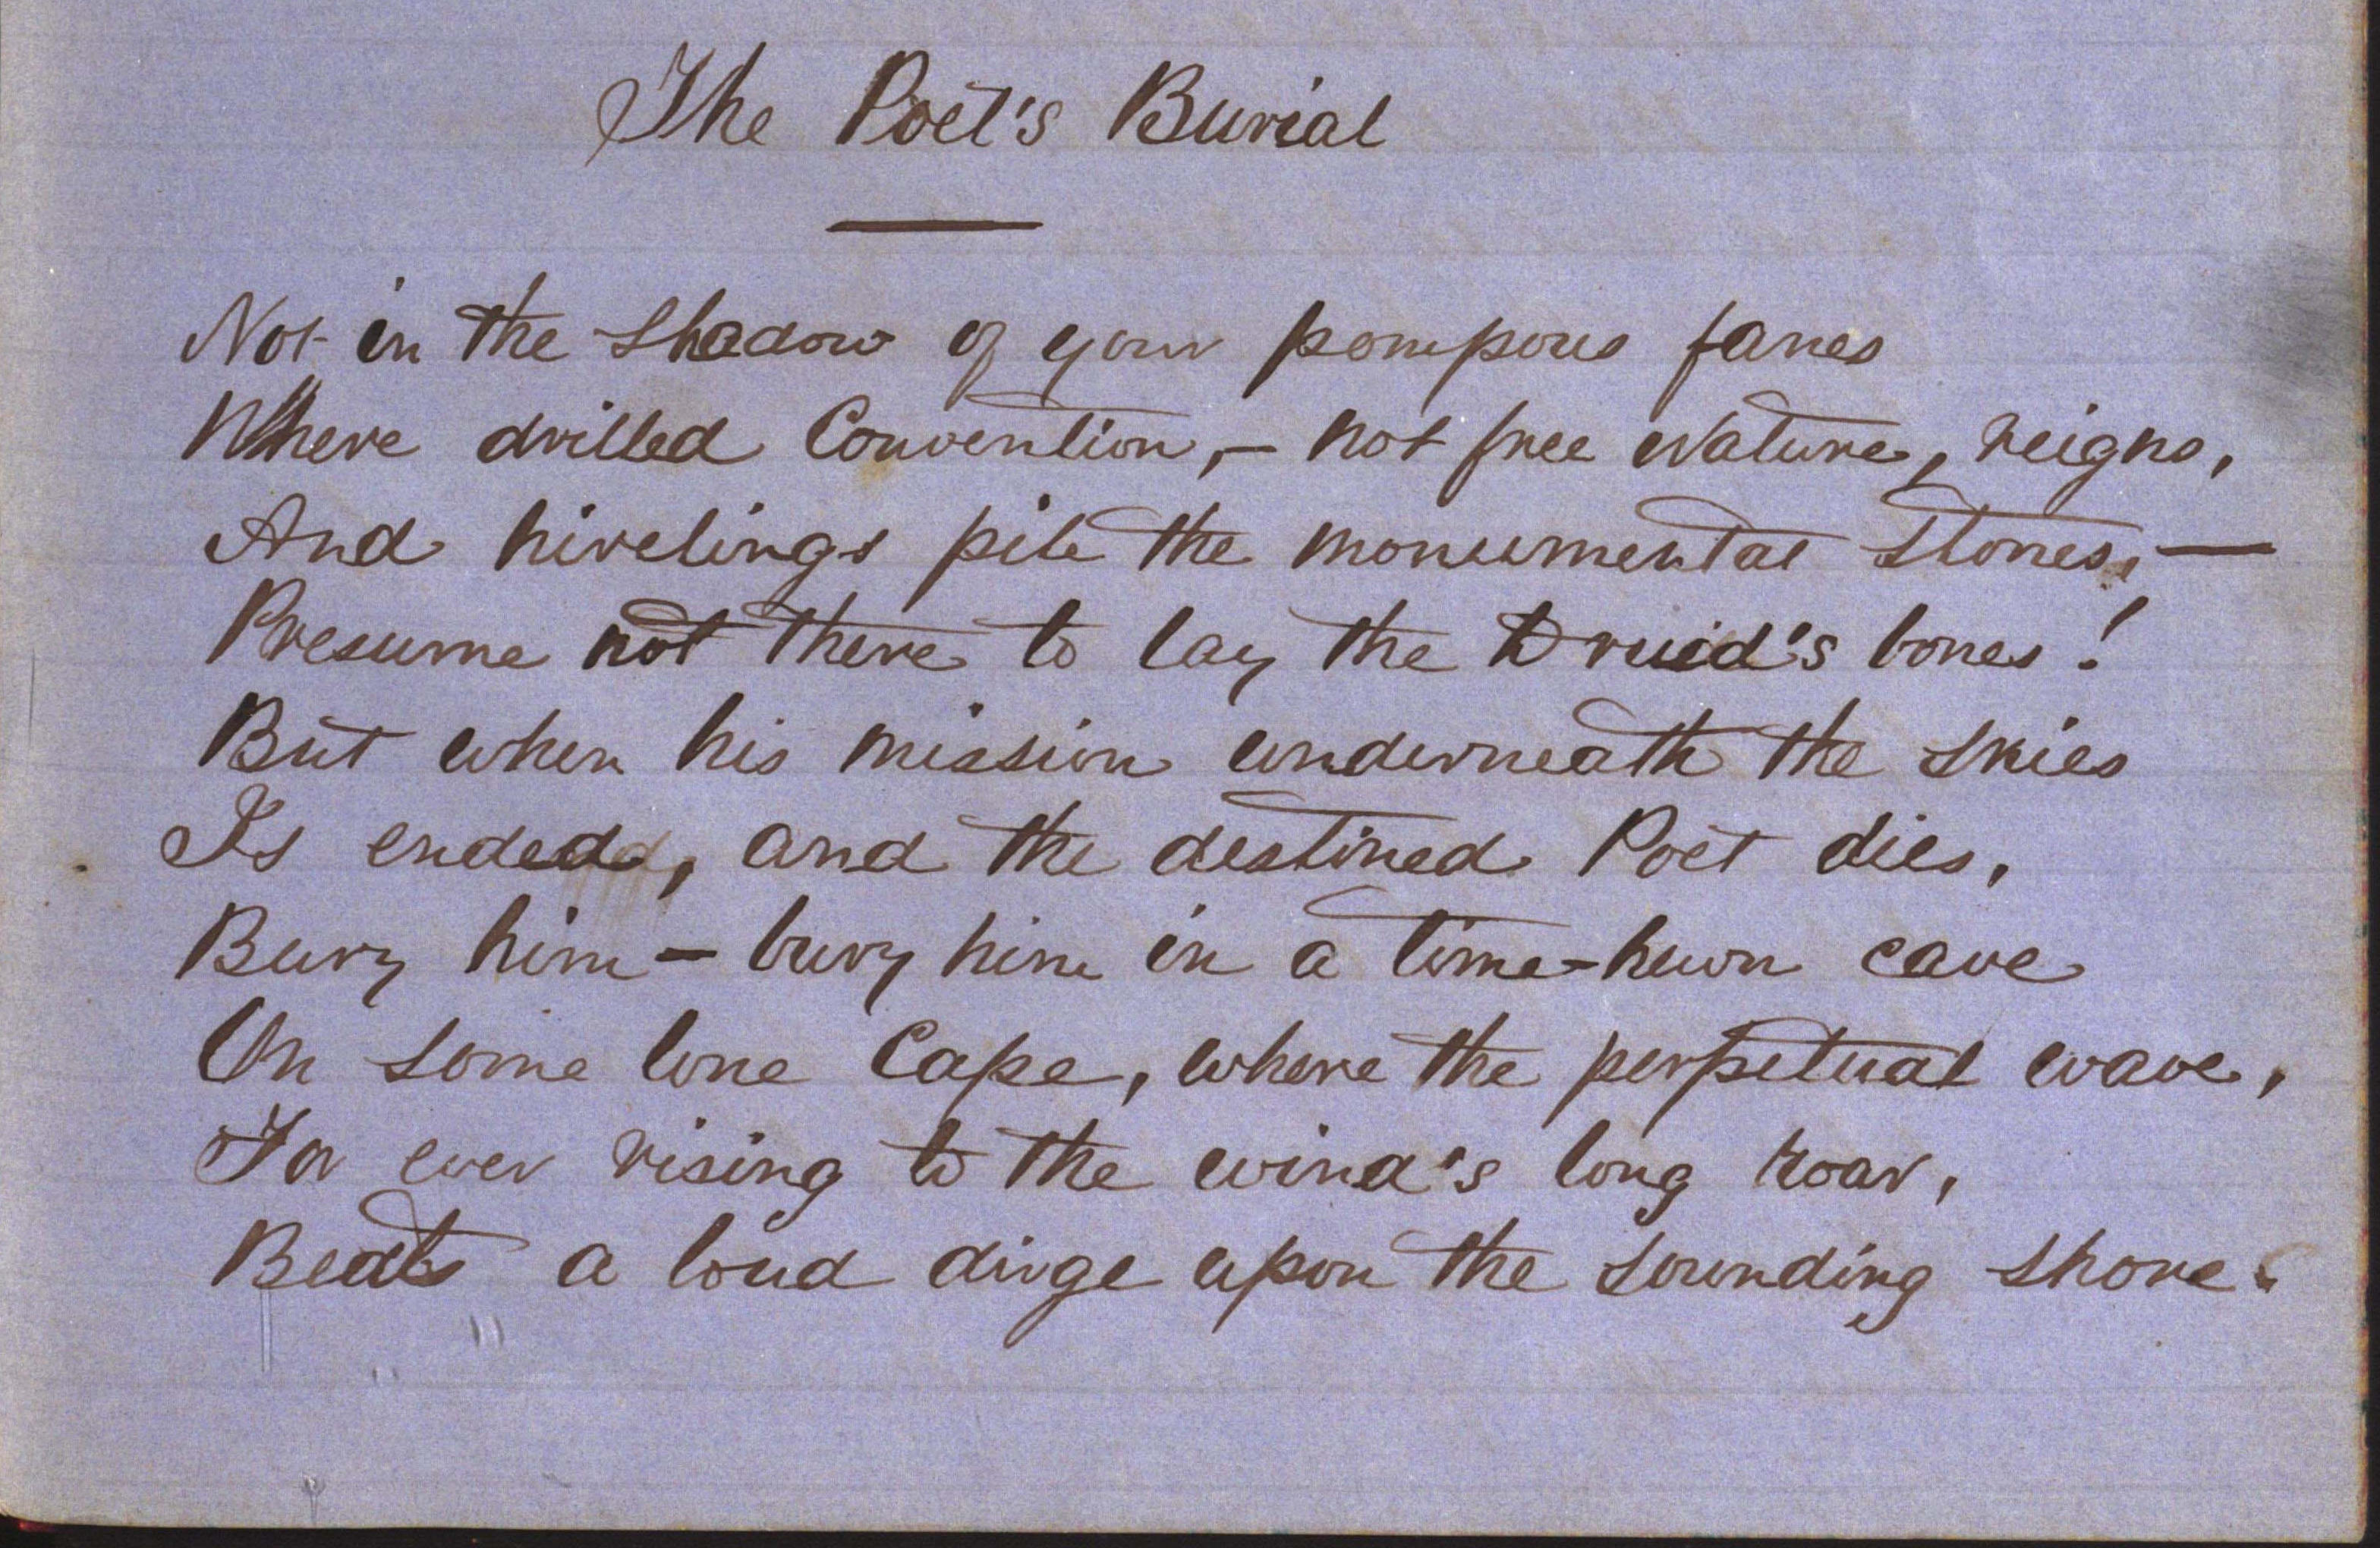 The Poet's Burial
Not in the shadow of your pompous fanes
Where drilled Convention, – not free Nature, reigns,
And hirelings pile the monumental stones, —
Presume not there to lay the Druid's bones!
But when his mission underneath the skies
Is ended, and the destined Poet dies,
Bury him – bury him in a time-hewn cave
On some lone Cape, where the perpetual wave,
For ever rising to the wind's long roar,
Beats a loud dirge upon the sounding shore.